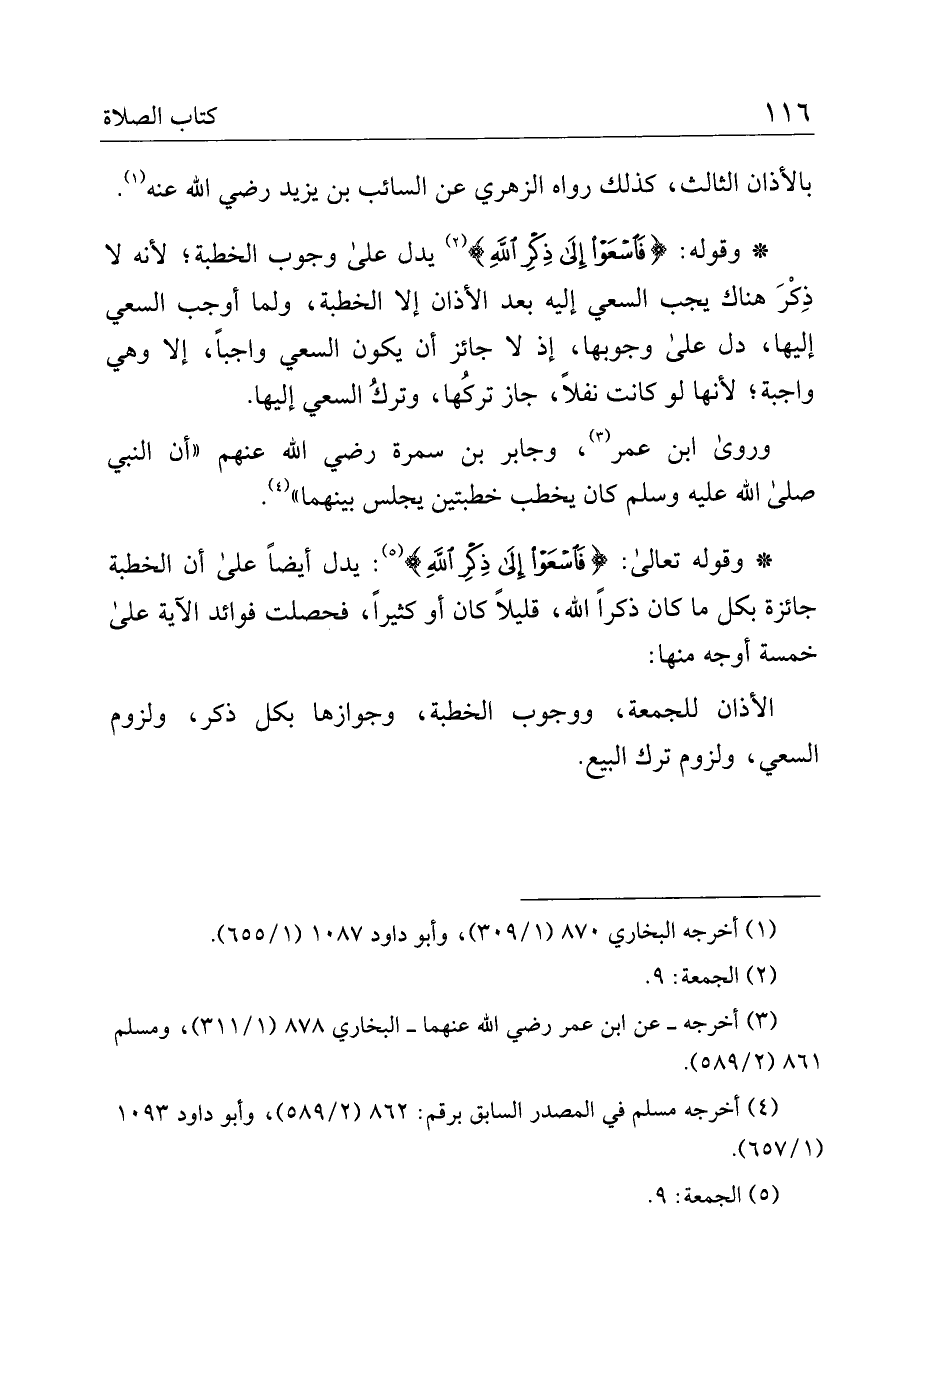 ١١٦ كتاب الصلاة
بالأذان الثالث، كذلك رواه الزهري عن السائب بن يزيد رضي الله عنه(١).
* وقوله: ﴿فَٱسۡعَوۡاْ إِلَىٰ ذِكۡرِ ٱللَّهِ﴾(٢) يدل علىٰ وجوب الخطبة؛ لأنه لا
ذِكْرَ هناك يجب السعي إليه بعد الأذان إلا الخطبة، ولما أوجب السعي
إليها، دل علىٰ وجوبها، إذ لا جائز أن يكون السعي واجباً، إلا وهي
واجبة؛ لأنها لو كانت نفلاً، جاز تركُها، وتركُ السعي إليها.
وروىٰ ابن عمر(٣)، وجابر بن سمرة رضي الله عنهم «أن النبي
صلىٰ الله عليه وسلم كان يخطب خطبتين يجلس بينهما»(٤).
* وقوله تعالىٰ: ﴿فَٱسۡعَوۡاْ إِلَىٰ ذِكۡرِ ٱللَّهِ﴾(٥): يدل أيضاً علىٰ أن الخطبة
جائزة بكل ما كان ذكراً الله، قليلاً كان أو كثيراً، فحصلت فوائد الآية علىٰ
خمسة أوجه منها:
الأذان للجمعة، ووجوب الخطبة، وجوازها بكل ذكر، ولزوم
السعي، ولزوم ترك البيع.
(١) أخرجه البخاري ٨٧٠ (٣٠٩/١)، وأبو داود ١٠٨٧ (٦٥٥/١).
(٢) الجمعة: ٩.
(٣) أخرجه ـ عن ابن عمر رضي الله عنهما ـ البخاري ٨٧٨ (٣١١/١)، ومسلم
٨٦١ (٥٨٩/٢).
(٤) أخرجه مسلم في المصدر السابق برقم: ٨٦٢ (٥٨٩/٢)، وأبو داود ١٠٩٣
(٦٥٧/١).
(٥) الجمعة: ٩.